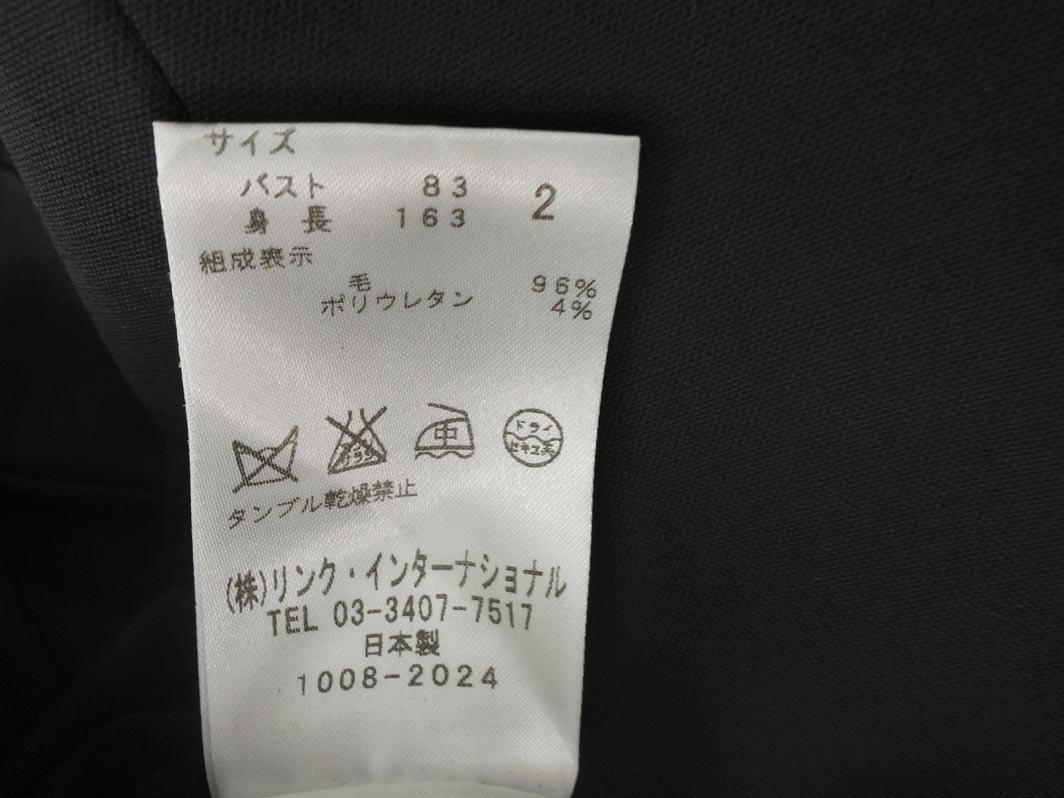 サイズ
バスト 83 2
身長 163
組成表示
毛 96%
ポリウレタン 4%
エンソ サラシ
中
ドライ
セキユ系
タンブル乾燥禁止
(株)リンク・インターナショナル
TEL 03-3407-7517
日本製
1008-2024